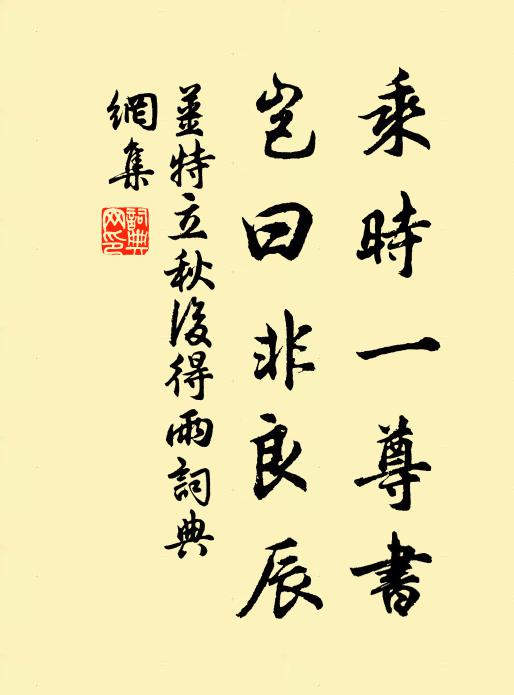 乘時一尊書
豈曰非良辰
薑特立秋後得雨詞典
網集
詞典
网印